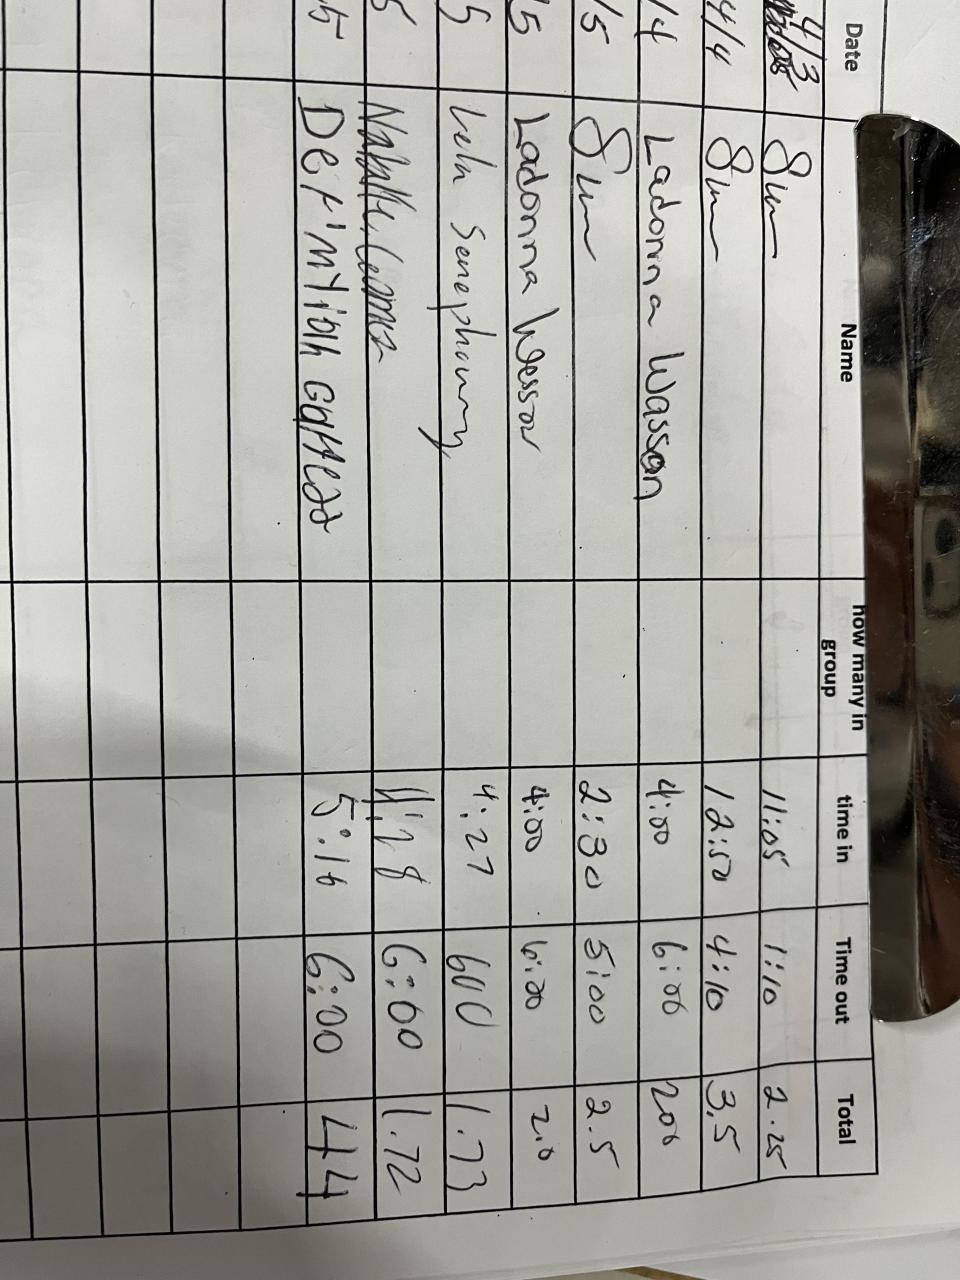 Date Name how many in group time in Time out Total
4/3 Sun 11:05 1:10 2.25
4/4 Sun 12:50 4:10 3.5
/4 Ladonna Wasson 4:00 6:00 200
/5 Sun 2:30 5:00 2.5
/5 Ladonna Wesson 4:00 6:00 2.0
5 4:27 600 1.73
5 6:00 1.72
5 5:16 6:00 44